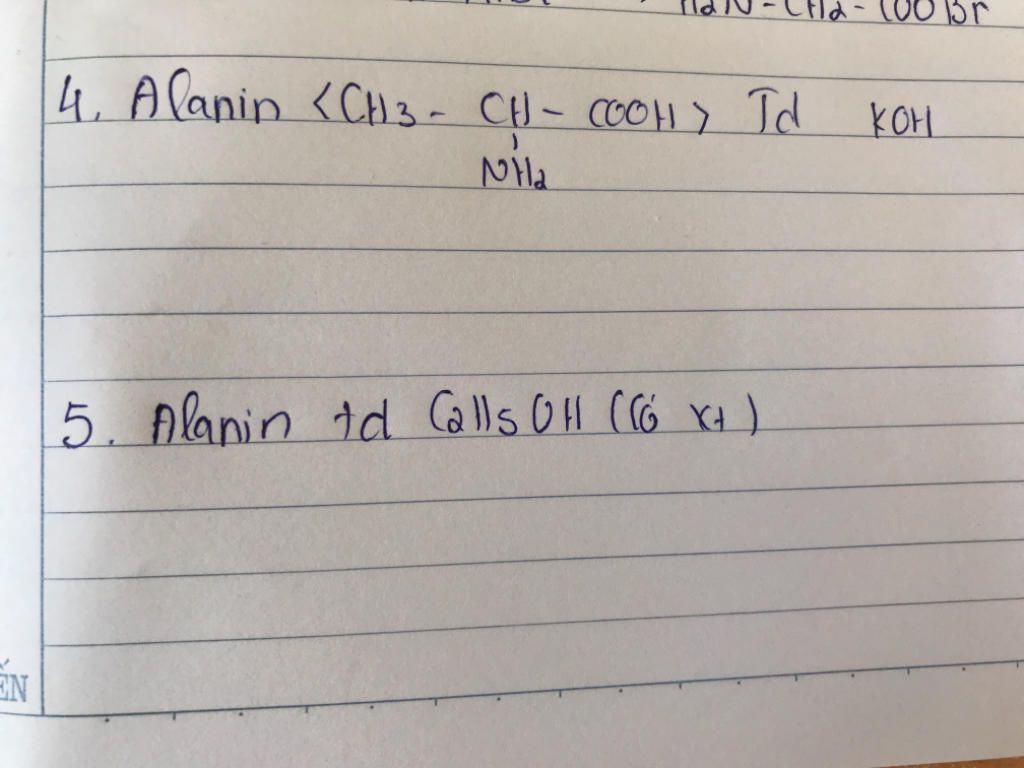 H2N-CH2-COOBr
4. Alanin <CH3 - CH - COOH> Td KOH
NH2
5. Alanin td C2H5OH (Có xt)
ẾN